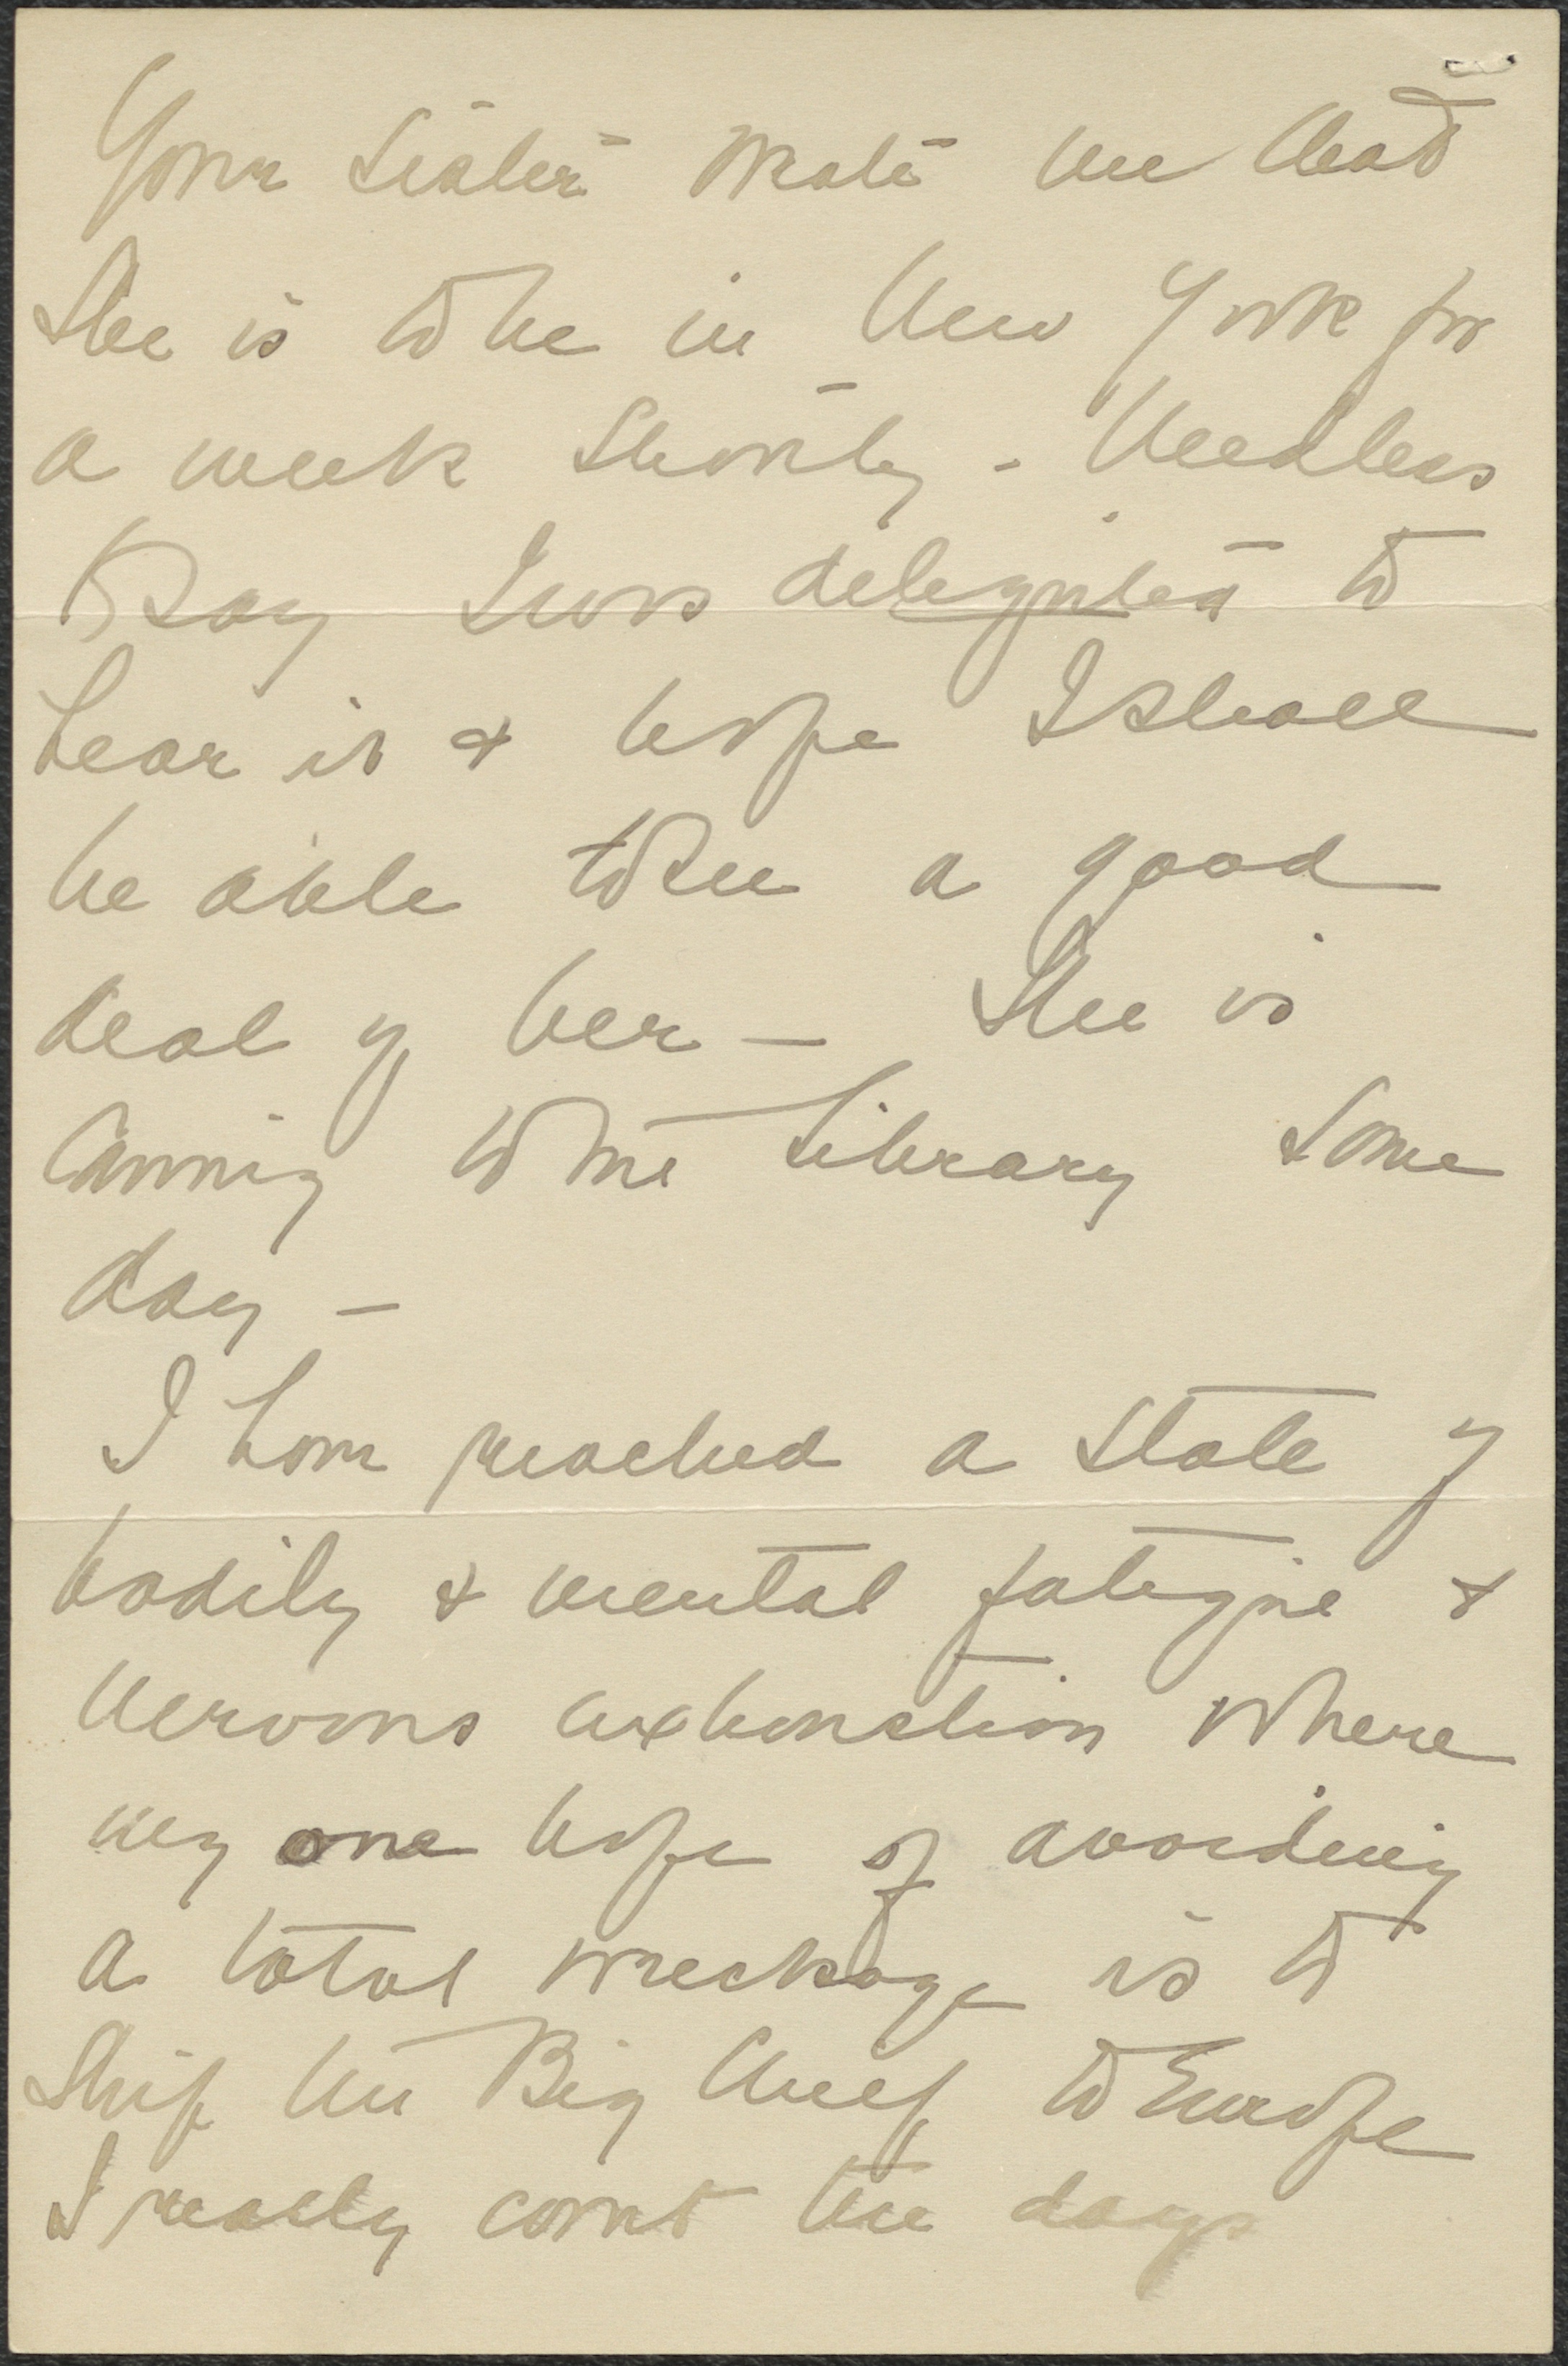 Your sister wrote me that
She is to be in New York for
a week shortly - Needless
to say I was delighted to
hear it & hope I shall
be able to see a good
deal of her — She is
coming to the Library some
day —
I have reached a state of
bodily & mental fatigue &
nervous exhaustion where
my one hope of avoiding
a total wreckage is to
ship the Big Chief to Europe
I really count the days